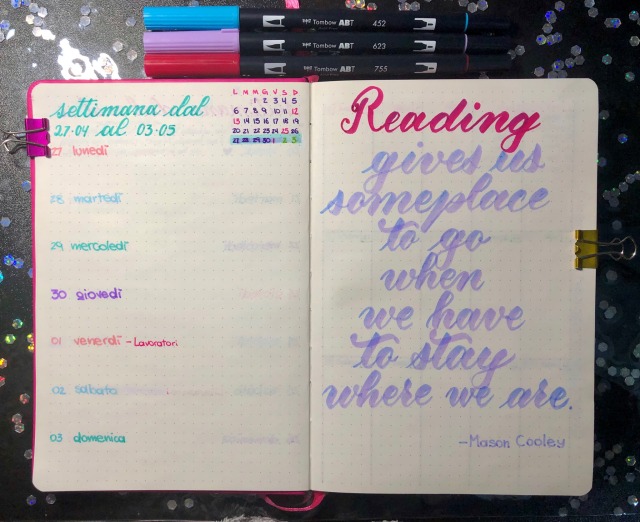 Tombow ABT 452
Tombow ABT 623
Tombow ABT 755
settimana dal
27.04 al 03.05
L M M G V S D
1 2 3 4 5
6 7 8 9 10 11 12
13 14 15 16 17 18 19
20 21 22 23 24 25 26
27 28 29 30 1 2 3
27 lunedì
28 martedì
29 mercoledì
30 giovedì
01 venerdì - Lavoratori
02 sabato
03 domenica
Reading
gives us
someplace
to go
when
we have
to stay
where we are.
-Mason Cooley